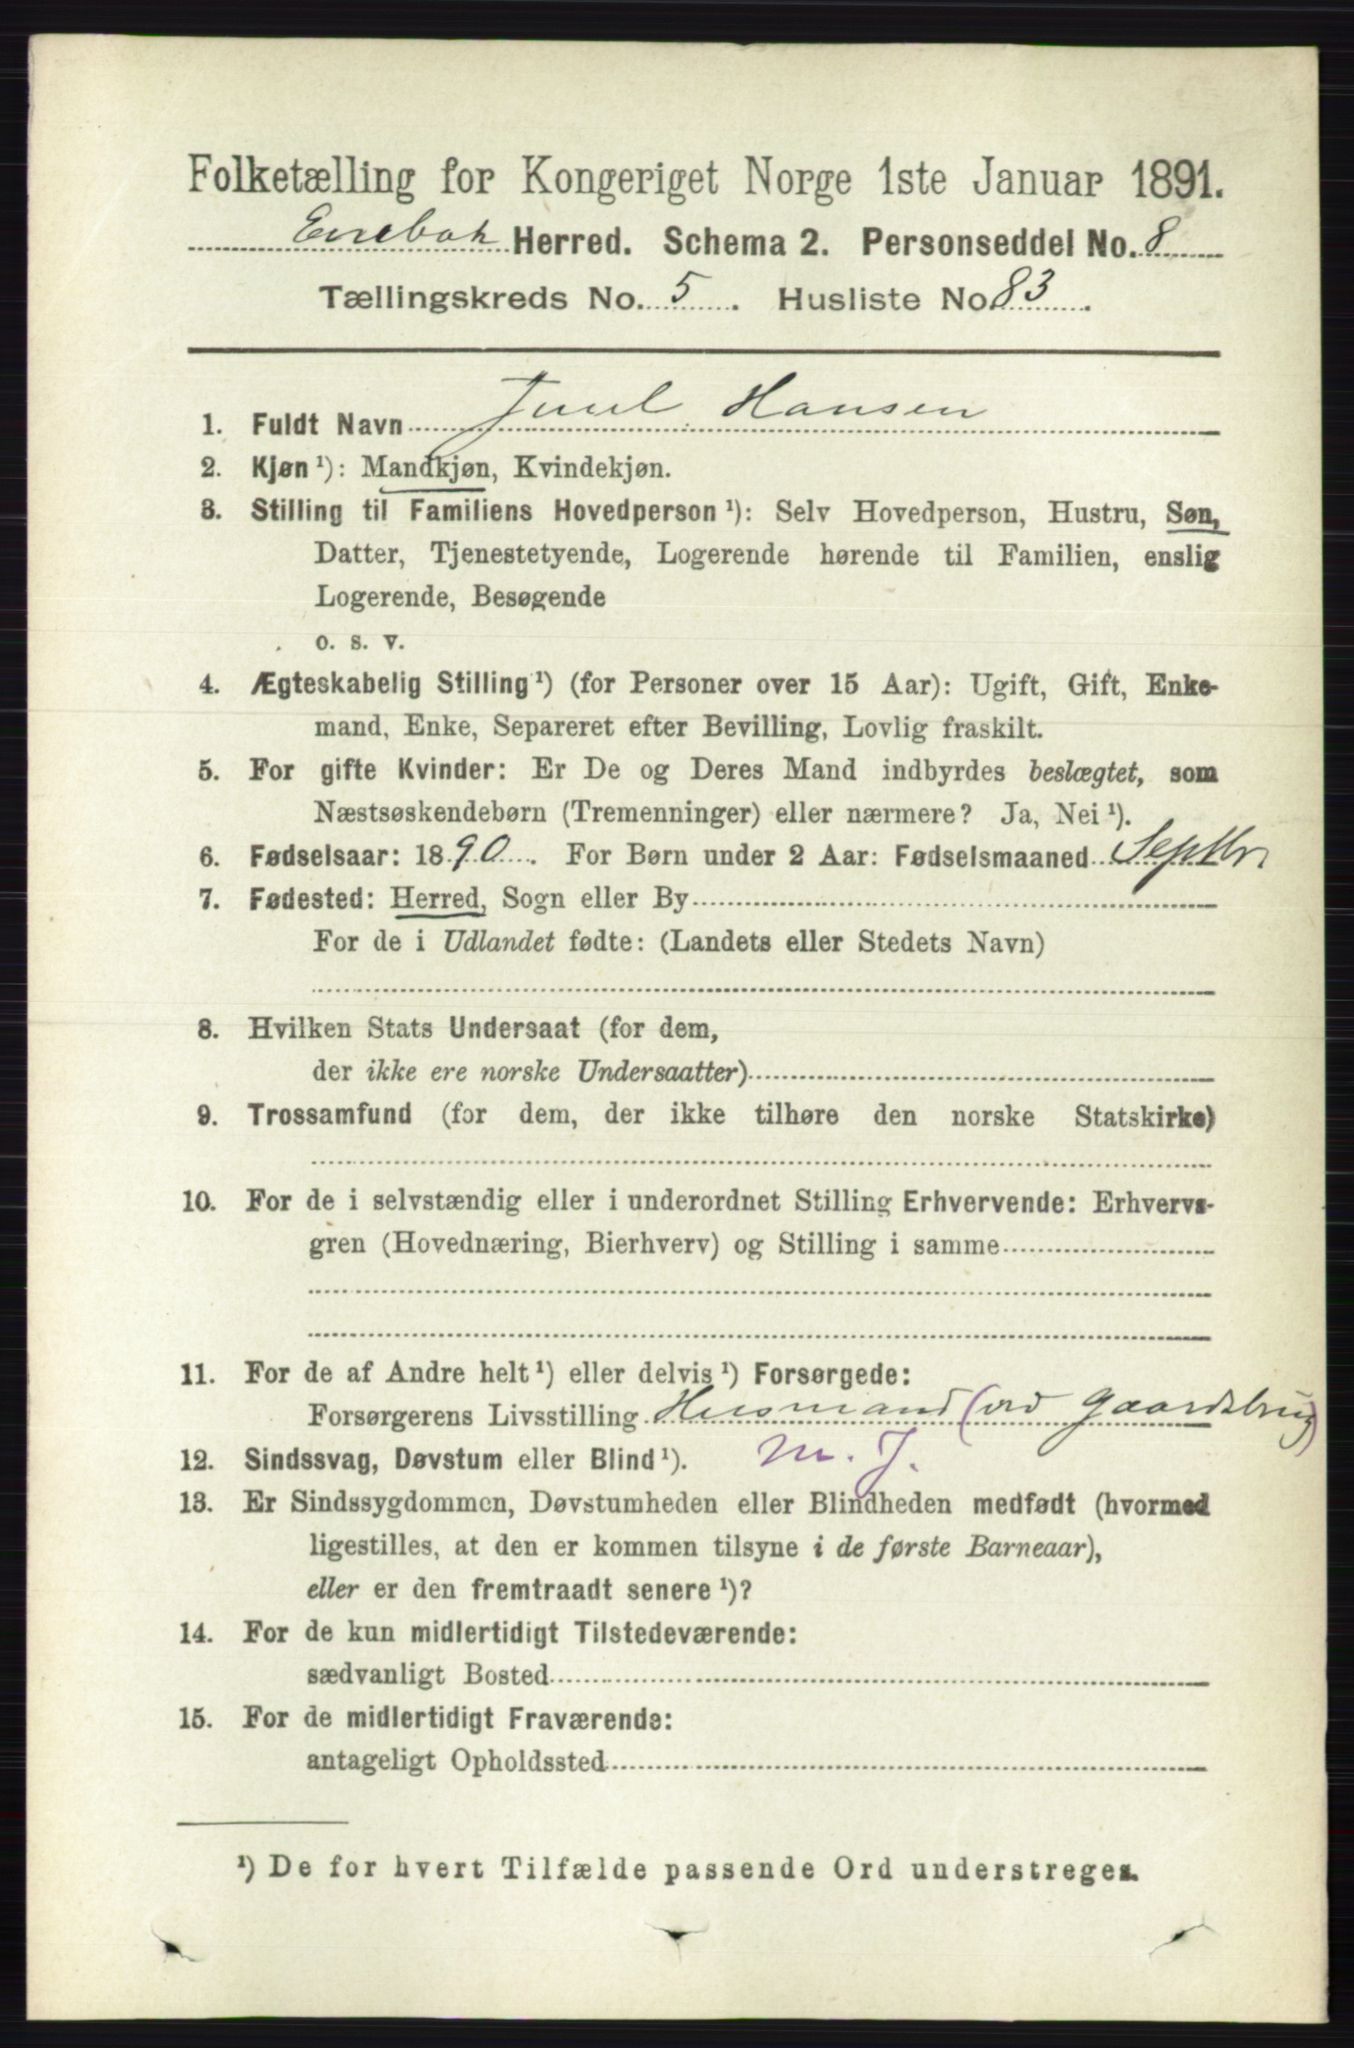 Folketælling for Kongeriget Norge 1ste Januar 1891.
Enebak Herred. Schema 2. Personseddel No. 8
Tællingskreds No. 5. Husliste No 83.
1. Fuldt Navn Juul Hansen
2. Kjøn ¹): Mandkjøn, Kvindekjøn.
3. Stilling til Familiens Hovedperson ¹): Selv Hovedperson, Hustru, Søn,
Datter, Tjenestetyende, Logerende hørende til Familien, enslig
Logerende, Besøgende
o. s. v.
4. Ægteskabelig Stilling ¹) (for Personer over 15 Aar): Ugift, Gift, Enke-
mand, Enke, Separeret efter Bevilling, Lovlig fraskilt.
5. For gifte Kvinder: Er De og Deres Mand indbyrdes beslægtet, som
Næstsøskendebørn (Tremenninger) eller nærmere? Ja, Nei ¹).
6. Fødselsaar: 1890. For Børn under 2 Aar: Fødselsmaaned Septbr
7. Fødested: Herred, Sogn eller By
For de i Udlandet fødte: (Landets eller Stedets Navn)
8. Hvilken Stats Undersaat (for dem,
der ikke ere norske Undersaatter)
9. Trossamfund (for dem, der ikke tilhøre den norske Statskirke)
10. For de i selvstændig eller i underordnet Stilling Erhvervende: Erhvervs-
gren (Hovednæring, Bierhverv) og Stilling i samme
11. For de af Andre helt ¹) eller delvis ¹) Forsørgede:
Forsørgerens Livsstilling Husmand (ved Gaardsbrug)
12. Sindssvag, Døvstum eller Blind ¹). m. J.
13. Er Sindssygdommen, Døvstumheden eller Blindheden medfødt (hvormed
ligestilles, at den er kommen tilsyne i de første Barneaar),
eller er den fremtraadt senere ¹)?
14. For de kun midlertidigt Tilstedeværende:
sædvanligt Bosted
15. For de midlertidigt Fraværende:
antageligt Opholdssted
¹) De for hvert Tilfælde passende Ord understreges.